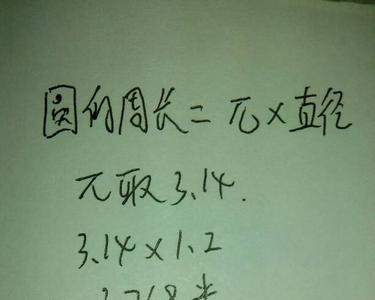 圆的周长=π×直径
π取3.14.
3.14×1.2